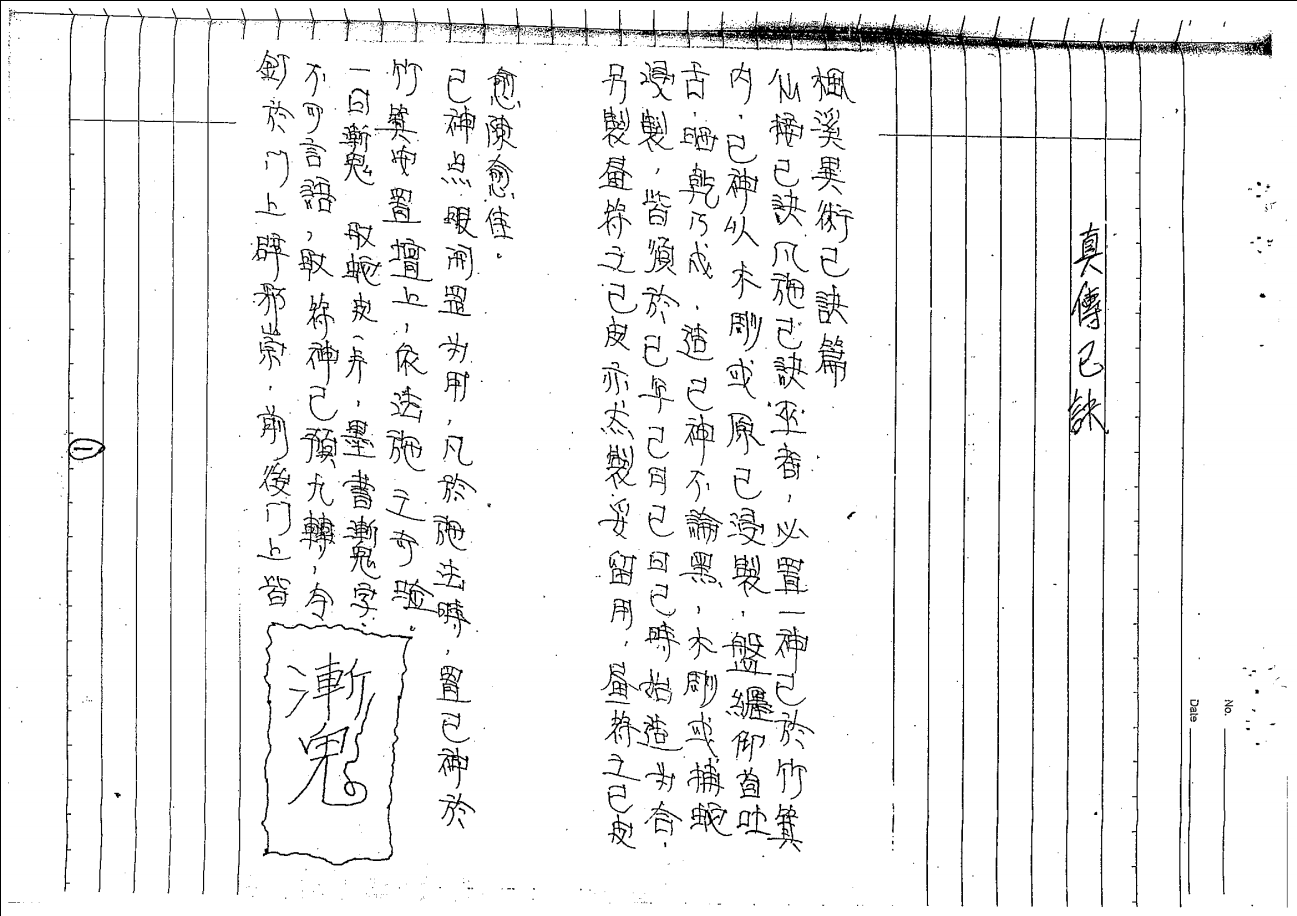 真傳己訣
楓溪異術己訣篇
仙搖己訣凡施己訣巫者，必置一神己於竹箕
內．己神以木雕或原己浸製．盤纏仰首吐
舌．晒乾乃成．造己神不論黑，木雕或捕蛇
浸製，皆須於己年己月己日己時始造為合．
另製畫符之己皮亦炁製妥留用．畫符之己皮
愈陳愈佳．
己神点眼開罡為用，凡於施法時，置己神於
竹箕安置壇上，依法施之奇驗．
一曰漸鬼 取蛇皮一片，墨書漸鬼字．
不可言語，取符神己頭九轉，令
釘於門上辟邪祟．前後門上皆
漸鬼
一
No.
Date